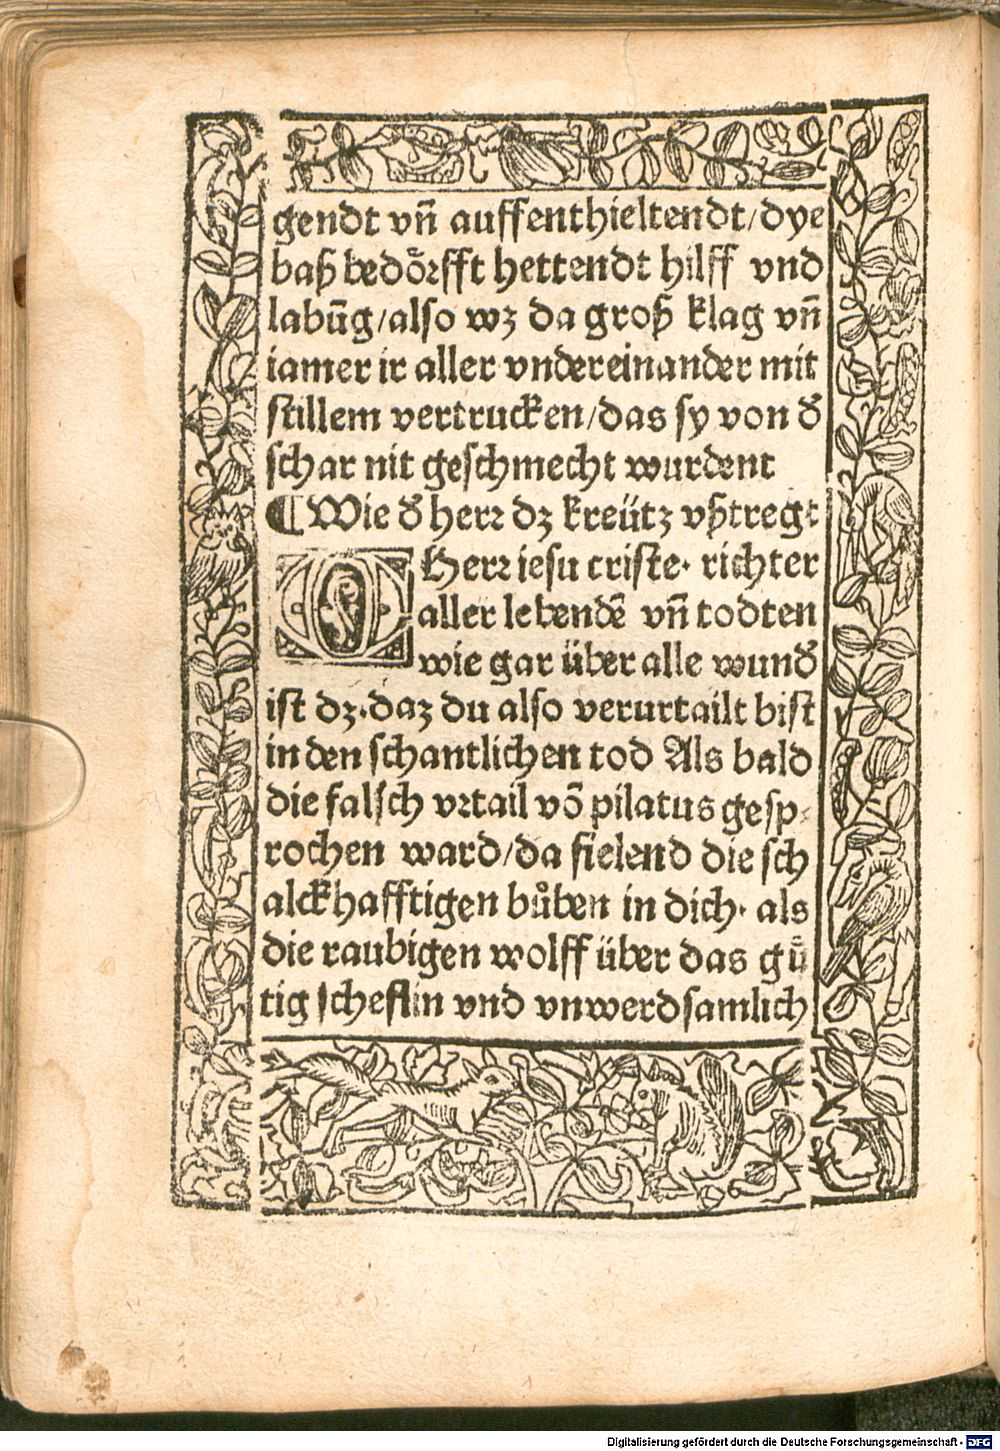 gendt vñ auffenthieltendt/dye
baß bedoͤrfft hettendt hilff vnd
labūg/also wz da groß klag vñ
iamer ir aller vndereinander mit
stillem vertrucken/das sy von đ
schar nit geschmecht wurdent
¶Wie đ herr dz kreütz vßtregt
O Herr iesu criste· richter
aller lebendē vñ todten
wie gar über alle wunđ
ist dz·daz du also verurtailt bist
in den schantlichen tod Als bald
die falsch vrtail võ pilatus gesp⸗
rochen ward/da fielend die sch
alckhafftigen bůben in dich· als
die raubigen wolff über das guͤ
tig scheflin vnd vnwerdsamlich
Digitalisierung gefördert durch die Deutsche Forschungsgemeinschaft - DFG